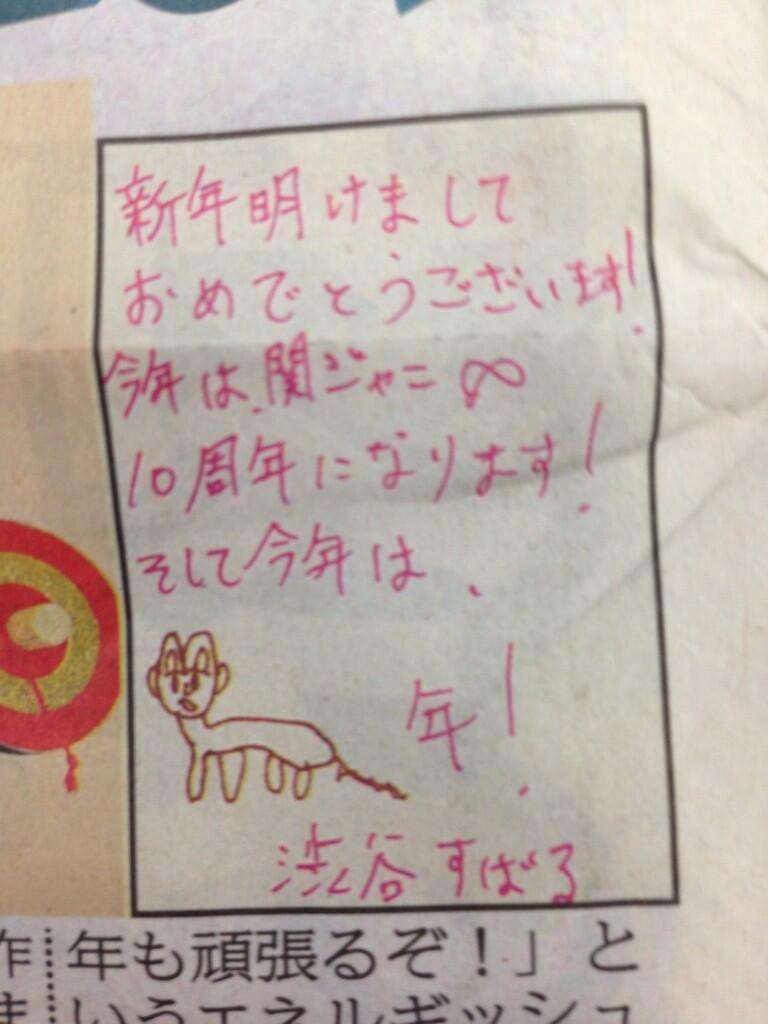 新年明けまして
おめでとうございます!
今年は、関ジャニ∞
10周年になります!
そして今年は、
年!
渋谷すばる
年も頑張るぞ!」と
いうエネルギッシュ